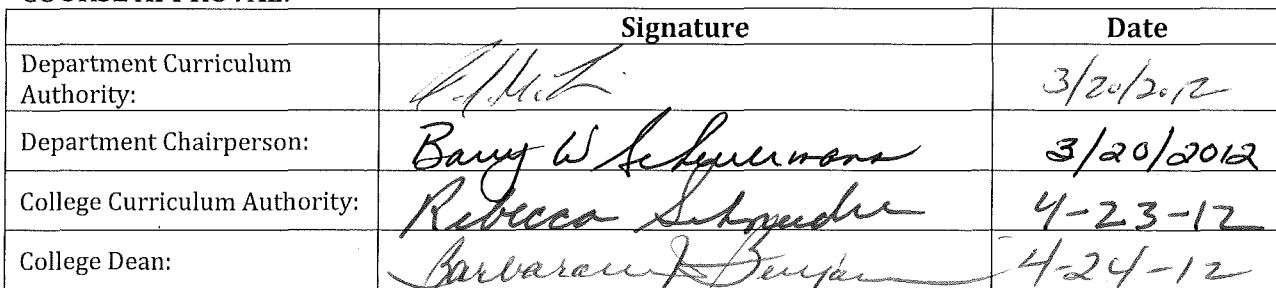 COURSE APPROVAL:
Signature Date
Department Curriculum
Authority: 3/20/2012
Department Chairperson: Barry W Scheuermann 3/20/2012
College Curriculum Authority: Rebecca Schneider 4-23-12
College Dean: 4-24-12